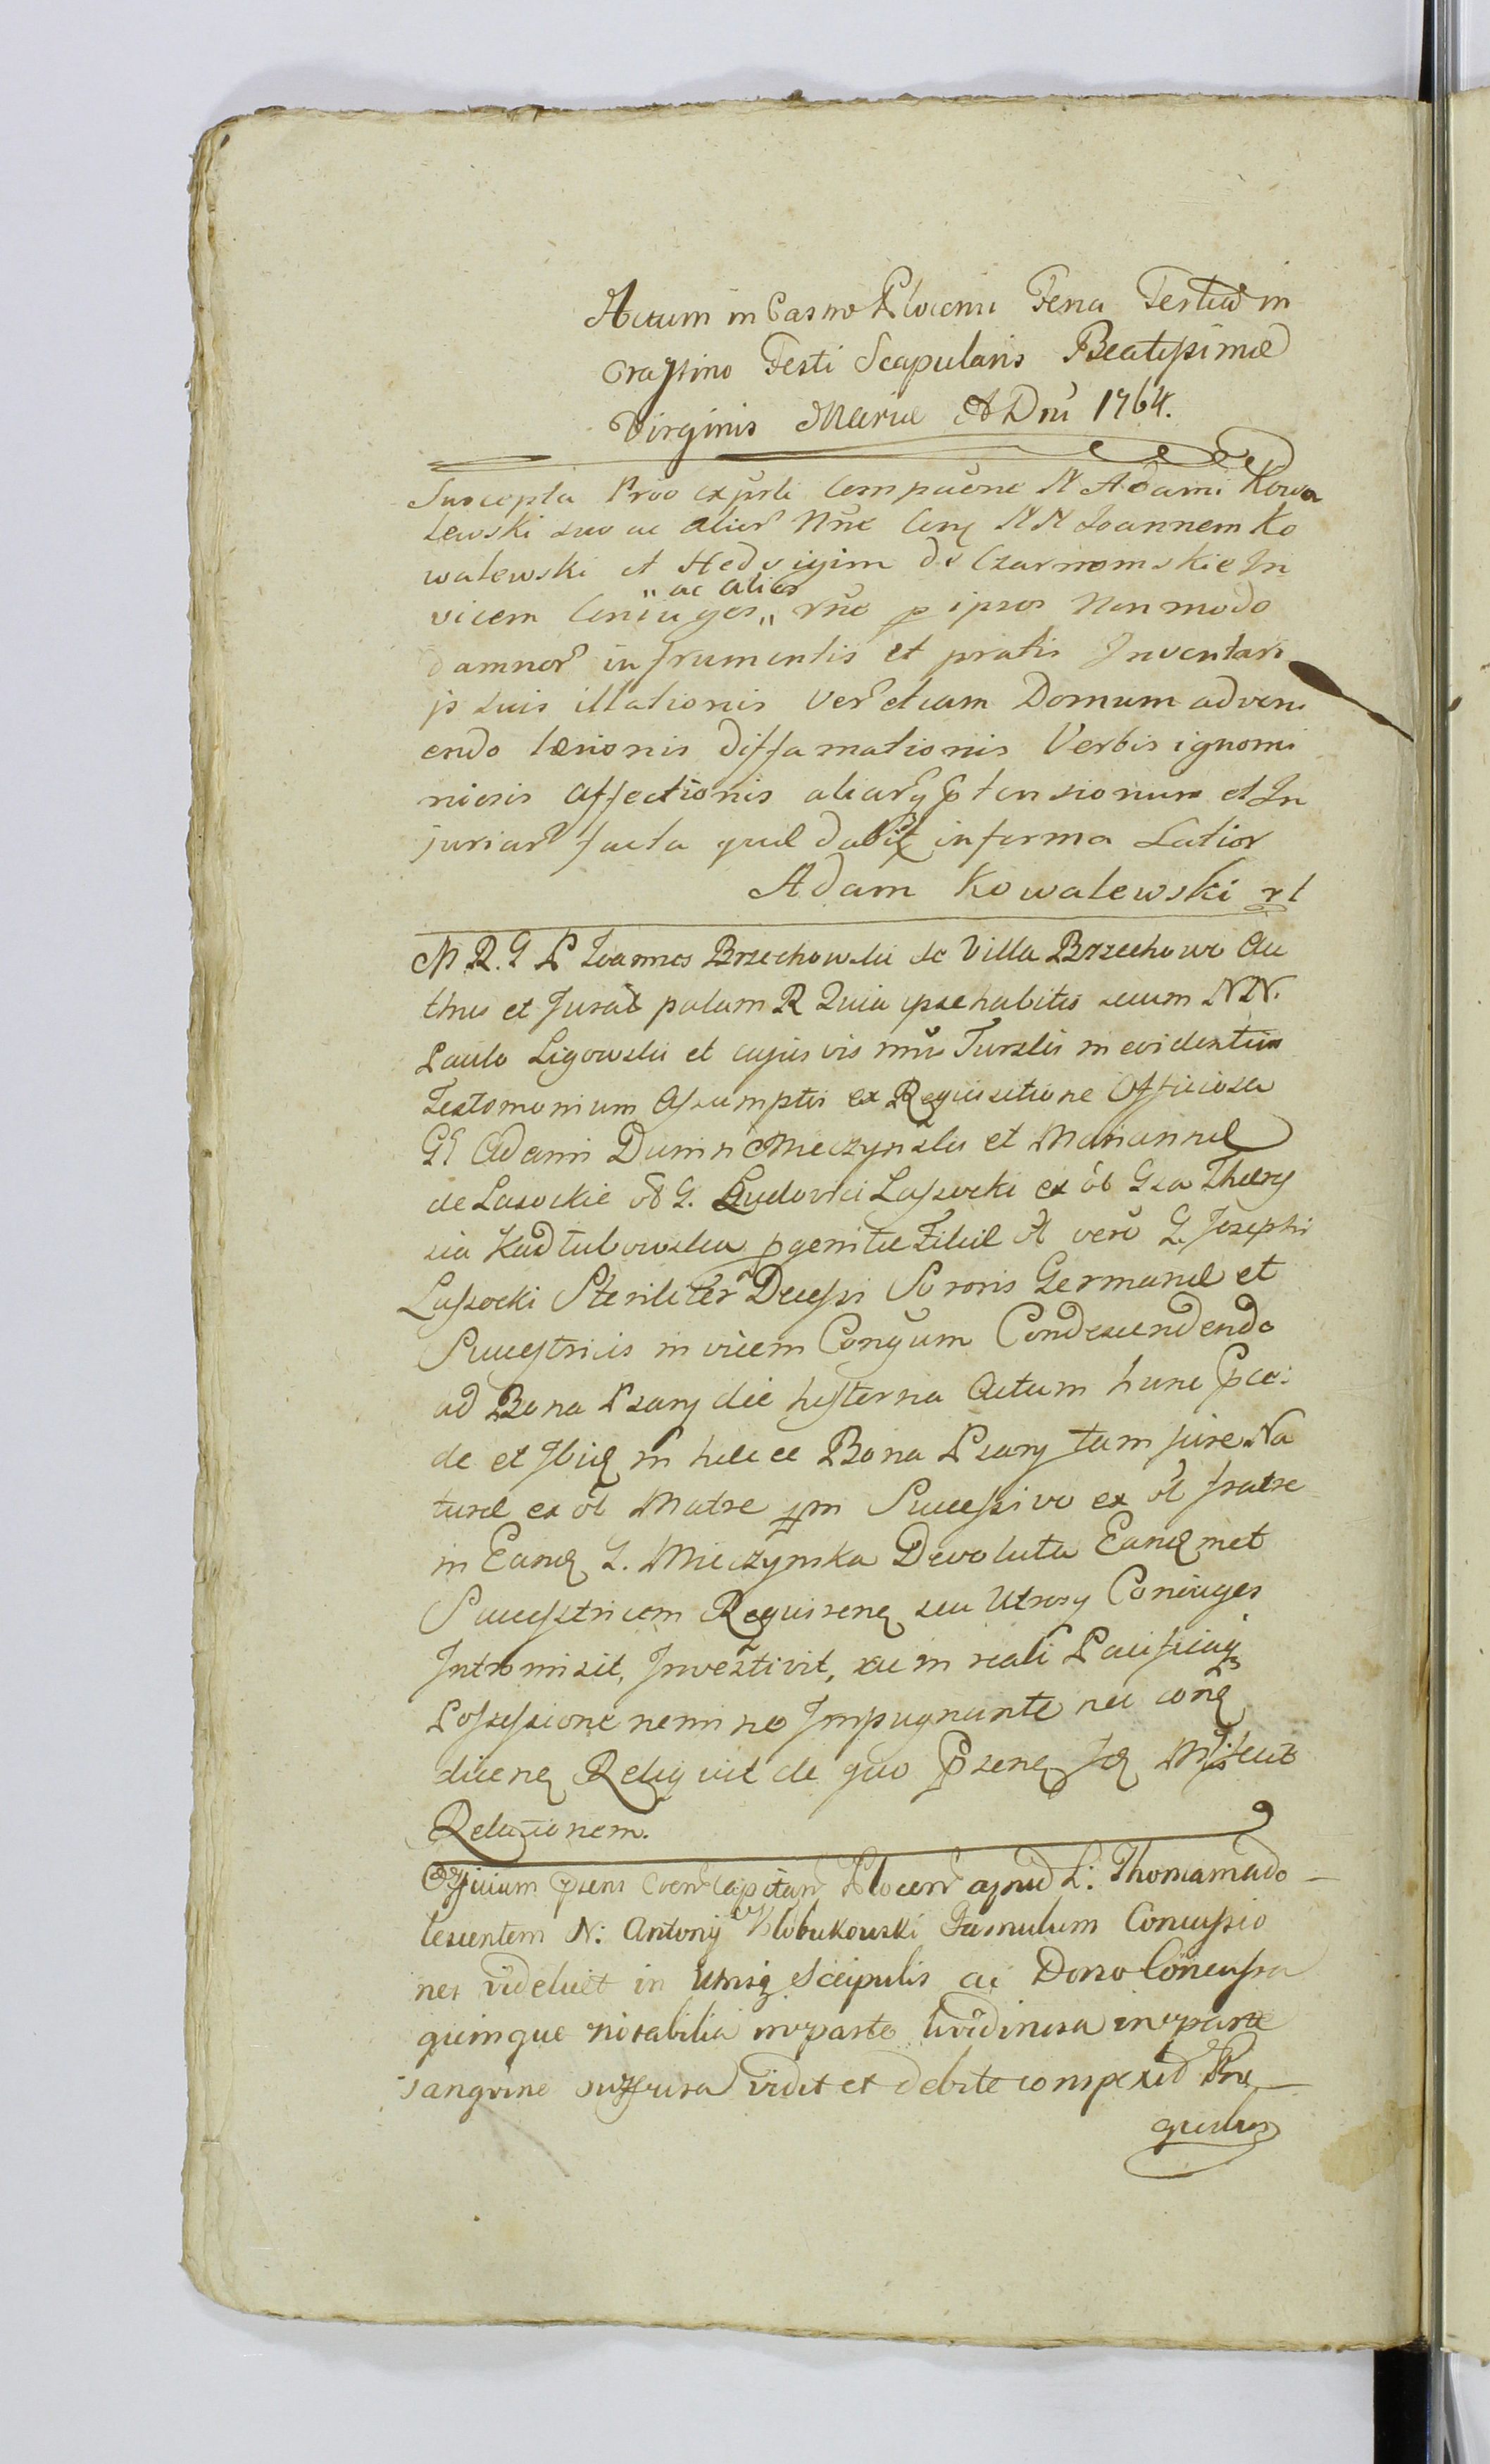 Actum in Castro Plocensi Feria Tertia in
Crastino Festi Scapularis Beatissimæ
Virginis Mariæ A Dni 1764.
Suscepta Prōo expſti Compaōne N Adami Kowa
lewski suo ac alior Nōe Cora NN Joannem Ko
walewski et Hedvigim de Czarnomskie In
vicem Coniuges „ ac alios „ rōe p ipsos Non modo
damnor in frumentis et pratis Inventari
js suis illationis Ver etiam Domum adveni
endo læsionis diffamationis Verbis ignomi
niosis affectionis aliarq ptensionum et In
juriar facta quæ dabit in forma Latior
Adam Kowalewski
M. R. G P Joannes Brzechowski de Villa Brzechowo Au
thus et Jurat palam R Quia ipse habitis secum NN.
Paulo Ligowski et cujus vis Turski in evidentius
Testomonium Assumptis ex Requisitione Officiosa
GG Adami Dunin Mieczynski et Mariannæ
de Lasockie ol G. Ludovici Lassocki ex ol Gsa There
sia Kadłubowska pgenitæ Filiæ ol vero G. Josephi
Lassocki Steriliter Decessi Sororis Germanæ et
Successtricis in vicem Conjugum Condescendendo
ad Bona Psary die hesterna Actum hunc præce:
de et Ibiq in hæcce Bona Psary tam jure Na
turæ ex ol Matre qm Successivo ex ol fratre
in Eand G. Mieczynska Devoluta Eand met
Successtricem Requiren seu Utrosq Coniuges
Intromisit, Investivit, ac in reali Pacificaq
Possessione nemine Impugnante nec con
dicen Reliquit de quo Præsen fecit
Relationem.
Officium præsens Castren Capitan Plocen apud L: Thomam ado
lescentem N: Antonij Kłobukowski Famulum Concussio
nes videlicet in Utrisq Scapulis ac Dorso Concussa
quinque notabilia in parte lividinosa in parte
sanguine suffusa vidit et debite conspexit Pro
quibus